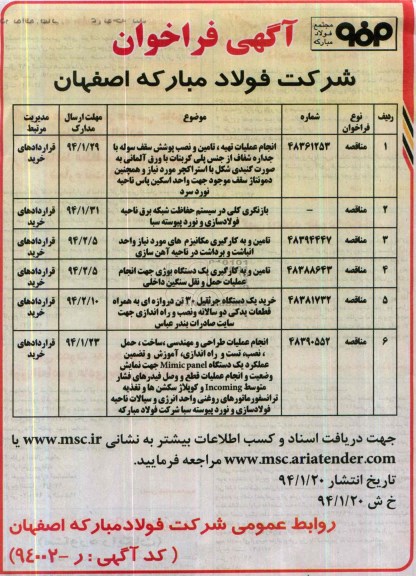 مجتمع
فولاد
مبارکه
آگهی فراخوان
شرکت فولاد مبارکه اصفهان
ردیف
نوع فراخوان
شماره
موضوع
مهلت ارسال مدارک
مدیریت مرتبط
۱
مناقصه
۴۸۳۶۱۲۵۳
انجام عملیات تهیه ، تامین و نصب پوشش سقف سوله با
جداره شفاف از جنس پلی کربنات با ورق آلمانی به
صورت گنبدی شکل با استراکچر مورد نیاز و همچنین
دمونتاژ سقف موجود جهت واحد اسکین پاس ناحیه
نورد سرد
۹۴/۱/۲۹
قراردادهای
خرید
۲
مناقصه
–
بازنگری کلی در سیستم حفاظت شبکه برق ناحیه
فولادسازی و نورد پیوسته سبا
۹۴/۱/۳۱
قراردادهای
خرید
۳
مناقصه
۴۸۳۹۴۴۴۷
تامین و به کارگیری مکانیزم های مورد نیاز واحد
انباشت و برداشت در ناحیه آهن سازی
۹۴/۲/۵
قراردادهای
خرید
۴
مناقصه
۴۸۳۸۸۶۴۳
تامین و به کارگیری یک دستگاه بوژی جهت انجام
عملیات حمل و نقل سنگین داخلی
۹۴/۲/۵
قراردادهای
خرید
۵
مناقصه
۴۸۳۸۱۷۳۲
خرید یک دستگاه جرثقیل ۳۰ تن دروازه ای به همراه
قطعات یدکی دو سالانه ونصب و راه اندازی جهت
سایت صادرات بندر عباس
۹۴/۲/۱۰
قراردادهای
خرید
۶
مناقصه
۴۸۳۹۰۵۵۲
انجام عملیات طراحی و مهندسی ،ساخت ، حمل
، نصب، تست و راه اندازی، آموزش و تضمین
عملکرد یک دستگاه Mimic panel جهت نمایش
وضعیت و انجام عملیات قطع و وصل فیدرهای فشار
متوسط Incoming و کوپلاژ سکشن ها و تغذیه
ترانسفورماتورهای روغنی واحد انرژی و سیالات ناحیه
فولادسازی و نورد پیوسته سبا شرکت فولاد مبارکه
۹۴/۱/۲۳
قراردادهای
خرید
جهت دریافت اسناد و کسب اطلاعات بیشتر به نشانی www.msc.ir یا
www.msc.ariatender.com مراجعه فرمایید.
تاریخ انتشار ۹۴/۱/۲۰
خ ش ۹۴/۱/۲۰
روابط عمومی شرکت فولادمبارکه اصفهان
( کد آگهی : ر -۹۴۰۰۲)